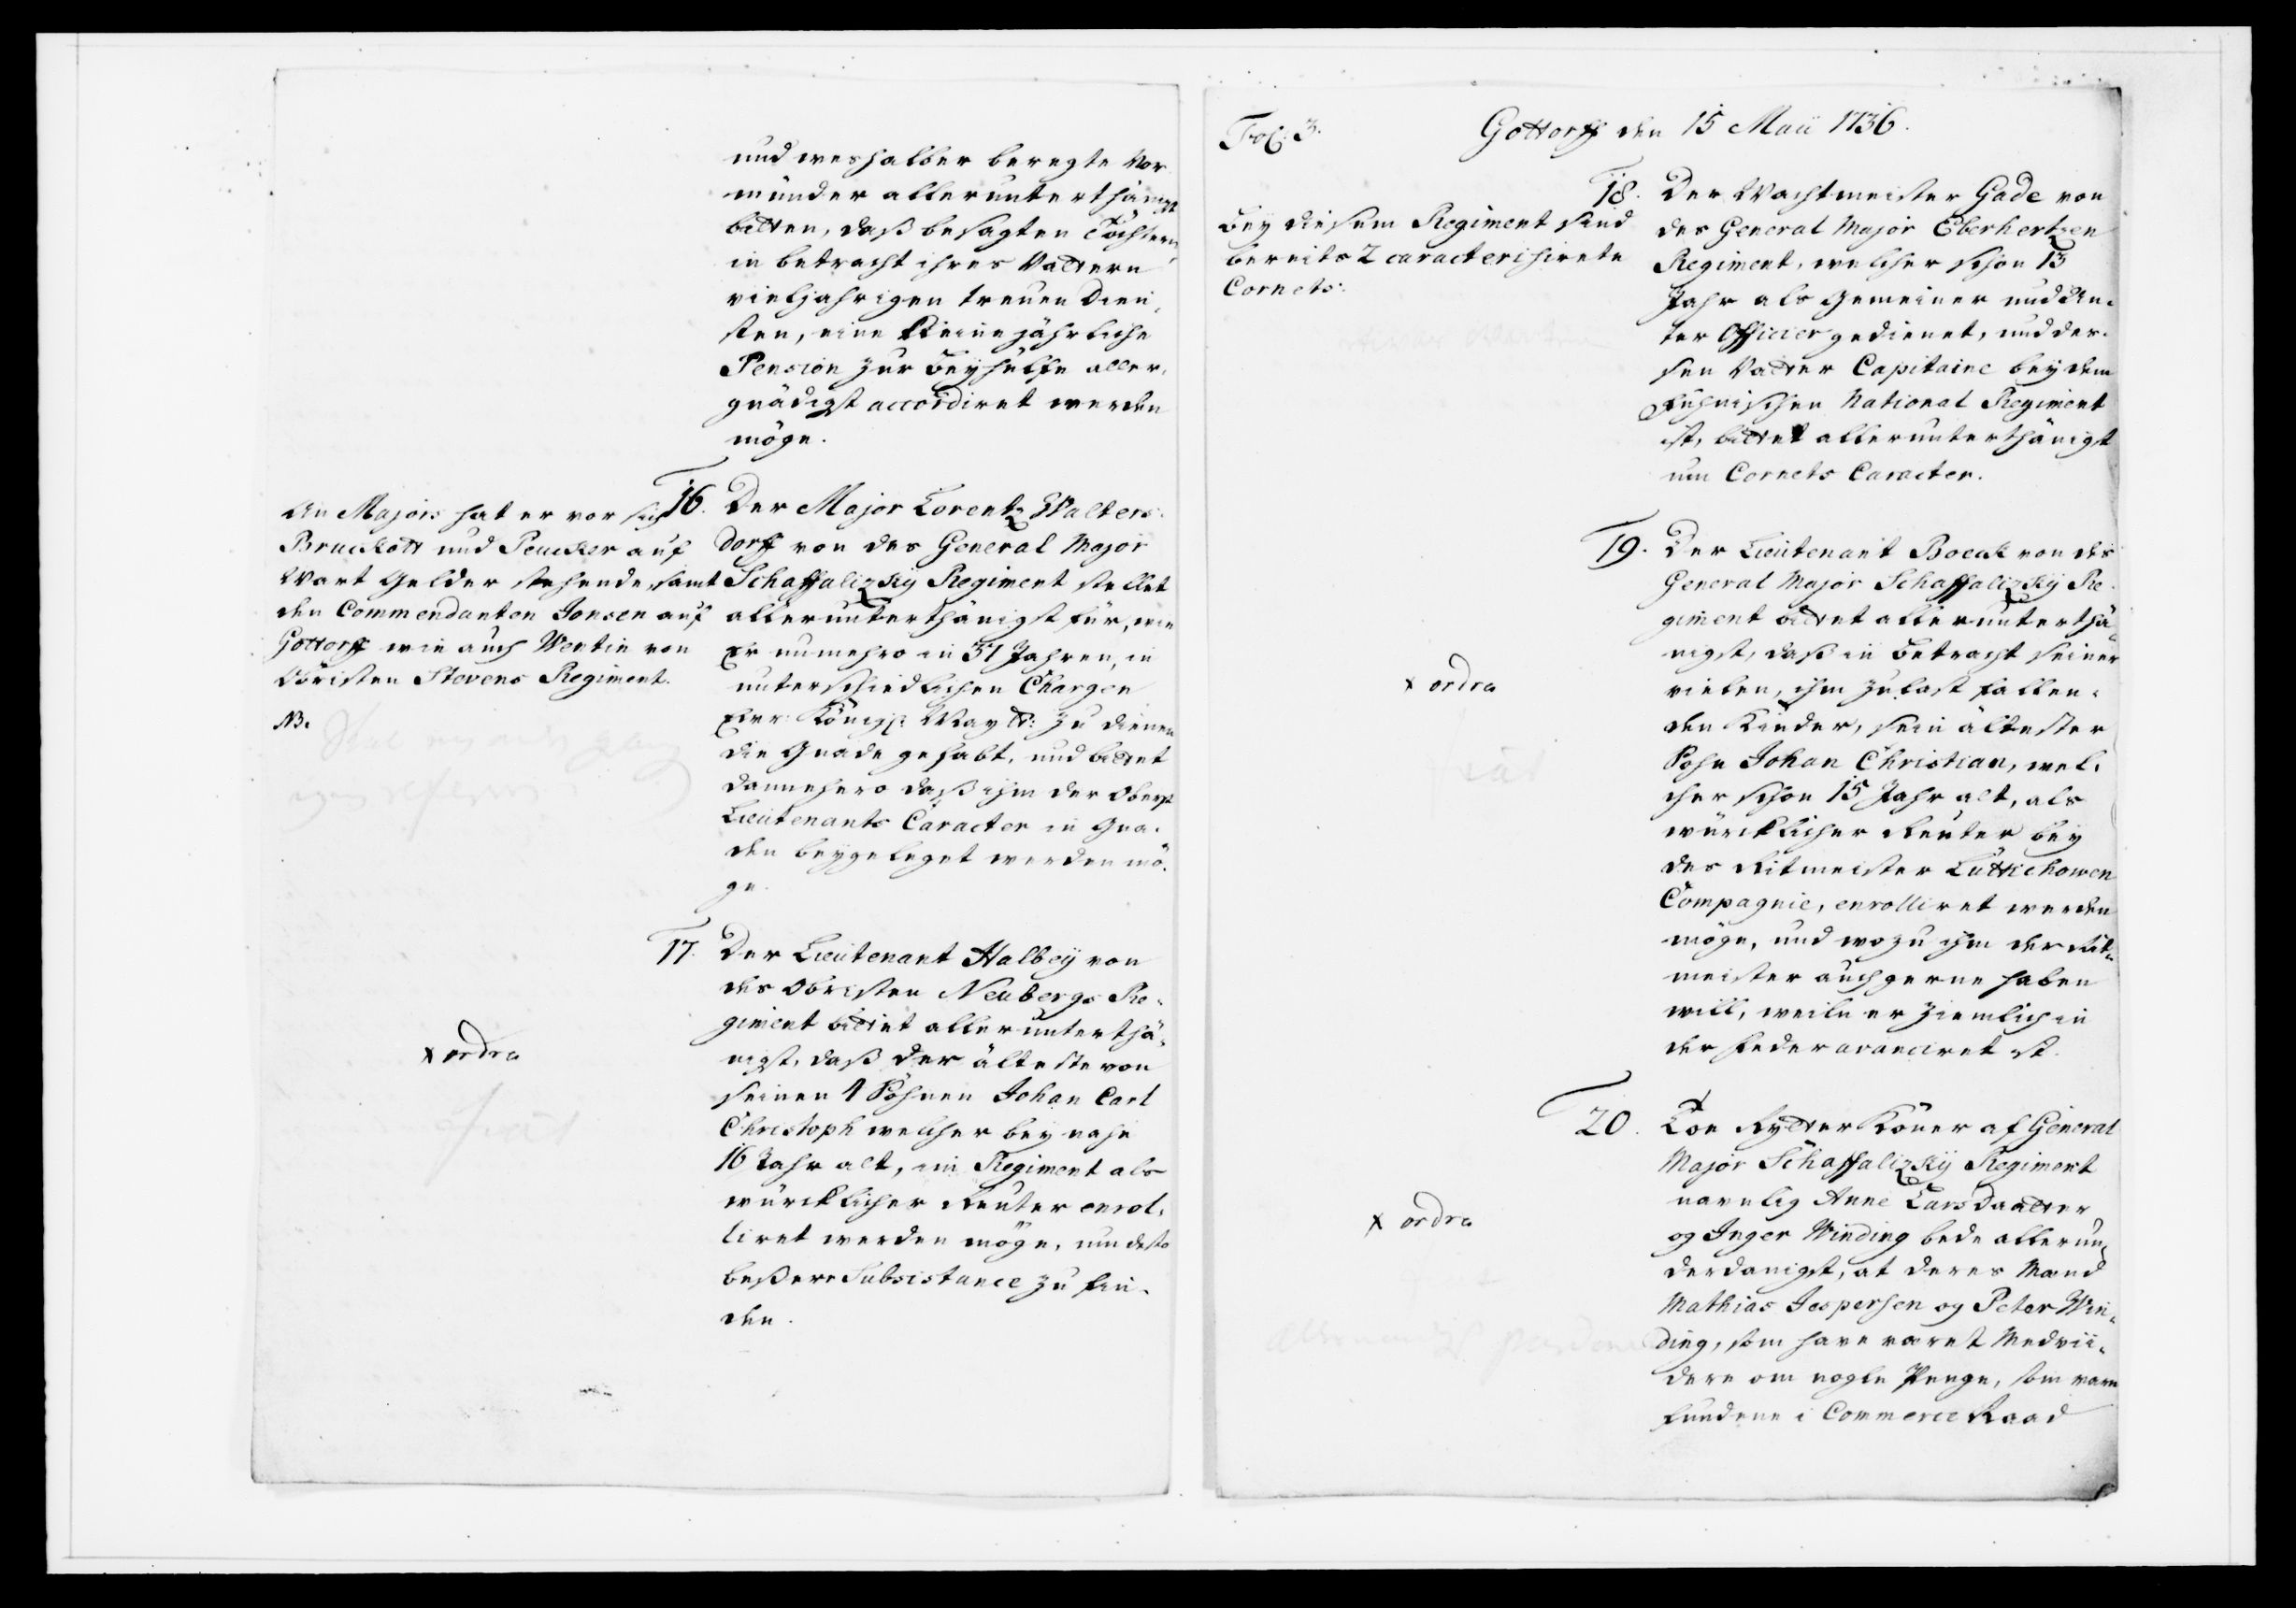 und weshalber beregte Vor
münder allerunterthänigst
bitten, daß besagten Töchtern,
in betracht ihres Vattern
vieljahrigen treuen Dien,
sten, eine kleine jährliche
Pension zur Beyhülffe aller,
gnädigst accordiret werden
möge.
An Majors hat er vor sich
Bruckott und Peucker auf
Wart Gelder stehende, samt
den Commendanten Jonsen auf
Gottorff wie auch Wentin von
Obristen Stevens Regiment.
NB.
16. Der Major Lorentz Walters
dorff von des General Major
Schaffalizky Regiment stellet
allerunterthänigst für, wie
Er numehro in 37 Jahren, in
unterschiedlichen Chargen
Ewr: Königl: Maytt: zu dienen
die Gnade gehabt, und bittet
dannehero daß ihm der Oberst
Lieutenants Caracter in Gna,
den beygeleget werden mö,
ge.
x ordre
17. Der Lieutenant Halbeÿ von
des Obristen Neubergs Re,
giment bittet allerunterthä,
nigst, daß der älteste von
seinen 4 Söhnen Johan Carl
Christoph welcher bey nahe
16 Jahr alt, im Regiment als
würcklicher Reuter enrol,
liret werden möge, um desto
beßere Subsistance zu fin,
den.
Fol: 3.
Gottorff den 15 Maii 1736.
Bey diesem Regiment sind
bereits 2 caracterisirete
Cornets.
18. Der Wachtmeister Gade von
des General Major Eberhertzen
Regiment, welcher schon 13
Jahr als Gemeiner und Un,
ter Officier gedienet, und des,
sen Vatter Capitaine bey dem
Fühnischen National Regiment
ist, bittet allerunterthänigst
um Cornets Caracter.
x ordre
19. Der Lieutenant Boeck von des
General Major Schaffalizkÿ Re,
giment bittet allerunterthä,
nigst, daß in Betracht seiner
vielen, ihm zu last fallen,
den Kinder, sein ältester
Sohn Johan Christian, wel,
cher schon 15 Jahr alt, als
würcklicher Reuter bey
des Ritmeister Lüttichowen
Compagnie, enrolliret werden
möge, und wozu ihm der Rit,
meister auch gerne haben
will, weiln er ziemlich in
der Feder avanciret ist.
x ordre
20. Toe Rytter Koner af General
Major Schaffalizkÿ Regiment
navnlig Anne Larsdaatter
og Inger Winding bede allerun,
derdanigst, at deres Mand
Mathias Jespersen og Peter Win,
ding, som have varet Medvii,
dere om nogle Penge, som vare
fundene i Commerce Raad